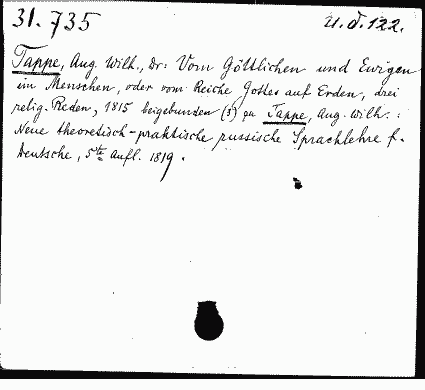 31.735
U.d.122.
Tappe, Aug. Wilh., Dr: Vom Göttlichen und Ewigen
im Menschen, oder vom Reiche Gottes auf Erden, drei
relig. Reden, 1815 beigebunden (3) zu Tappe, Aug. Wilh.:
Neue theoretisch-praktische russische Sprachlehre f.
Deutsche, 5te Aufl. 1819.